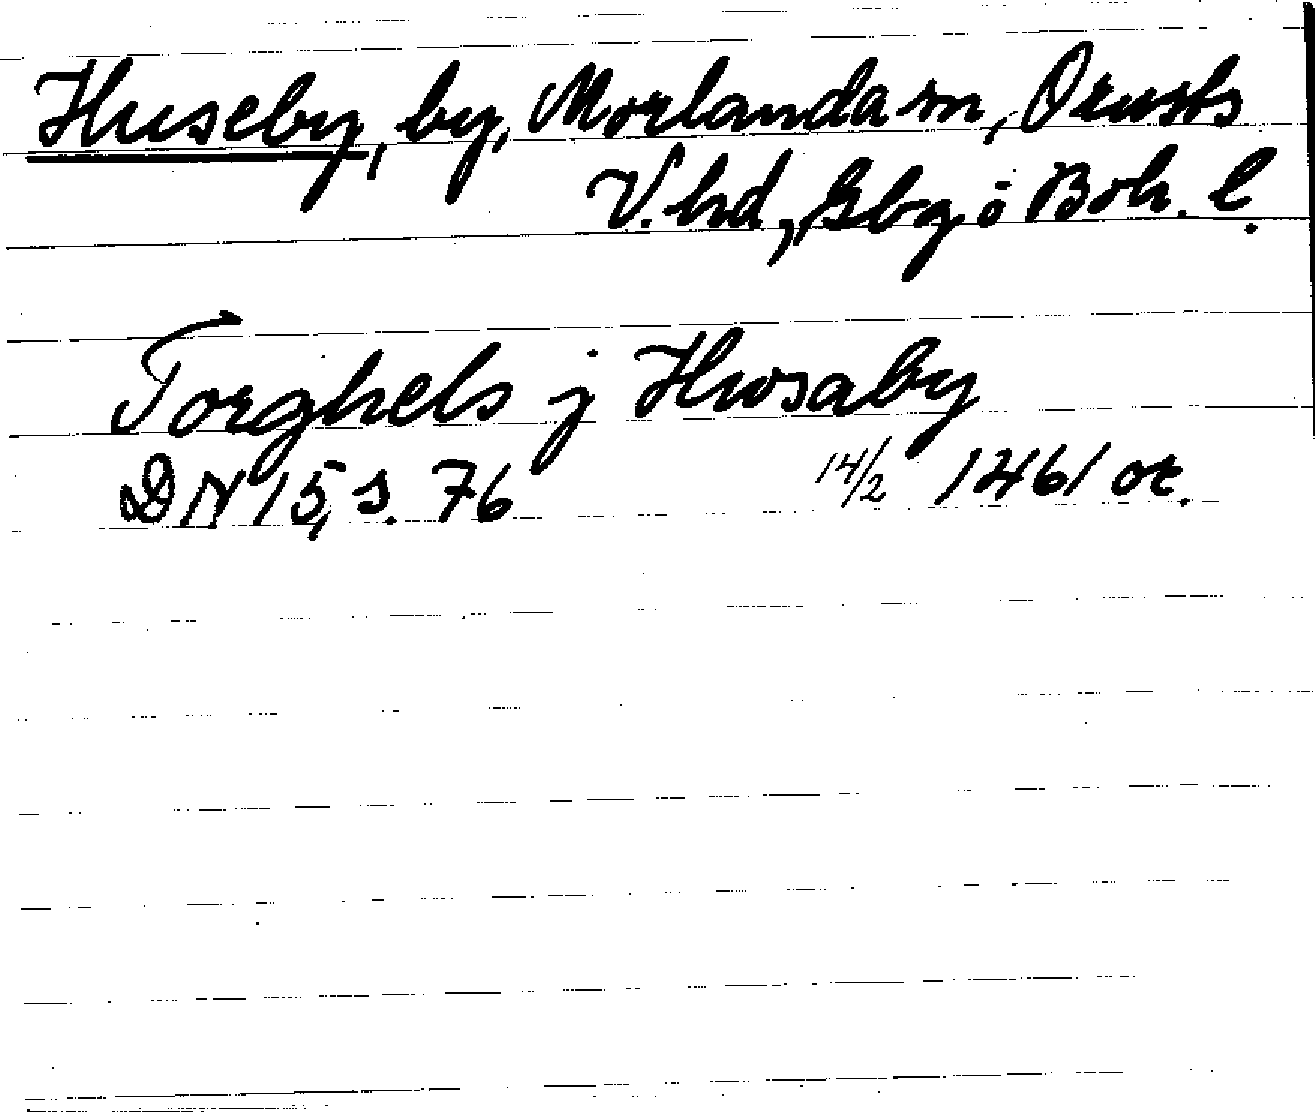 Huseby, by, Morlanda sn, Orusts
V. hd, Gbg o Boh. l.
Torghels j Hwsaby
DN 15, s. 76 14/2 1461 or.